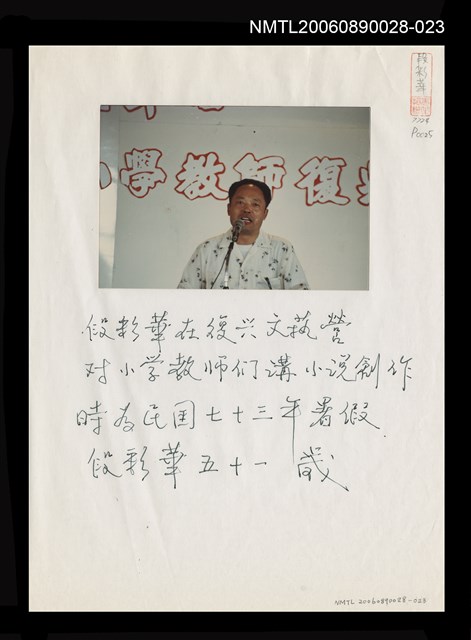 NMTL20060890028-023
段彩華
P0025
小學教師復興
段彩華在復兴文藝營
对小学教師们講小说創作
時為民国七十三年署假
段彩華五十一歲
NMTL 20060890028-023